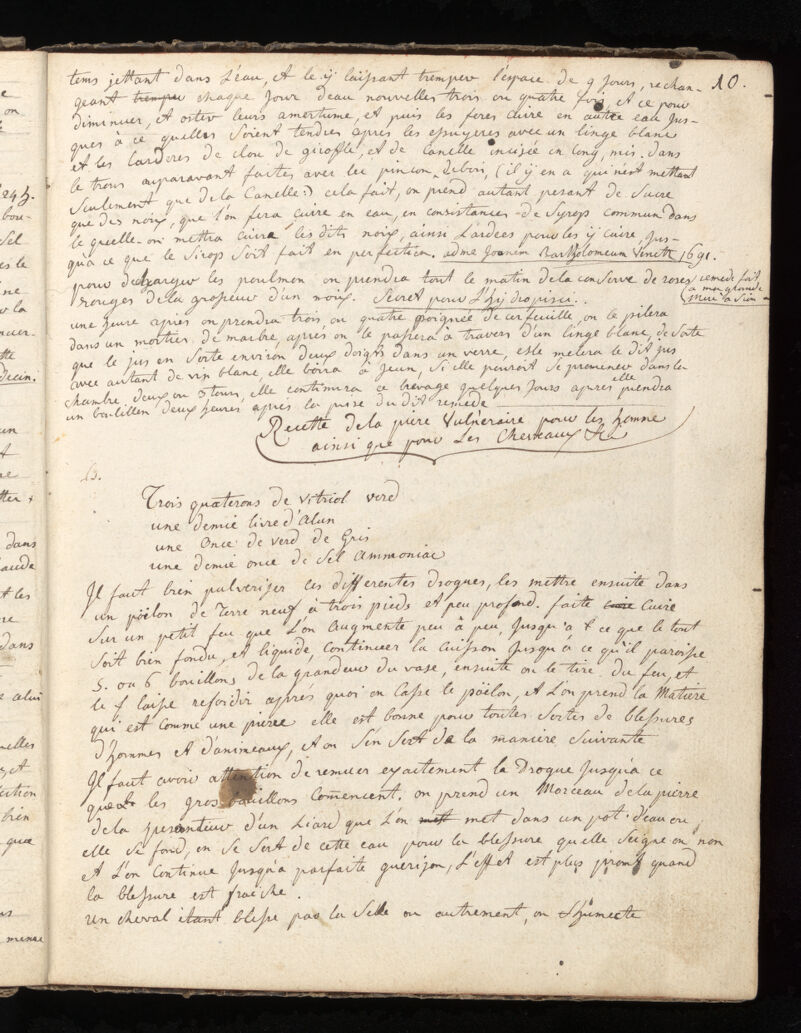 10.
tems jettant dans L'eau, et le ij laissant tremper l'espace de 9 jours, rechan-
geant tremper chaque jour d'eau nouvelles trois ou quatre fois, et ce pour
diminuer, et oster leurs amertume, et puis les feres cuire en autre eau jus-
ques à ce quelles soient tendres apres les essuyeres avec un linge blanc
et les larderes de clou de girofle, et de Canelle incisée en long, mis dans
le trous auparavant faites avec les pincon debois, (il ij en a qui n'est mettant
seulement que de la Canelle:) cela fait, on prend autant pesant de sucre
que des noix, que l'on fera cuire en eau, en consistances de syrops commun dans
le quelle on mettra cuire les dits noix, ainsi Lardees pour les ij cuire, jus-
qua ce que le sirops soit fait en perfection. adme Joanem Bartholomeum Vinott 1691.
pour decharger les poulmon on prendra tout le matin de la conserve de roses
rouges de la grosseur d'un noix. Secret pour L'hijdropisci..
remede fait
a mon grande
mere a Sion
une heure après on prendra trois ou quatre poignée de cerfeuille, on le pilera
dans un mortier de marbre, après on le passera à travers d'un linge blanc, de sorte
que le jus en sorte environ deux doigts dans un verre, elle melera le dit jus
avec autant de vin blanc, elle boira à jeun, si elle peuroit se promener dans la
chambre, deux ou 3 tours, elle continuera ce brevage quelques jours apres elle prendra
un boulillon deux heures après la prise du dit remede
Recette de la piere Vulneraire pour les homme
ainsi que pour Les Cheveaux
Trois quæterons de vitriol verd
une demie livre d'alun
une once de verd de Gris
une demie once de sel ammoniac
Il faut bien pulveriser ces differentes drogues, les mettre ensuite dans
un poëlon de Terre neuf à trois pieds et peu profond. faite cuire Cuire
sur un petit feu que L'on augmente peu à peu, jusqu'a ce que le tout
soit bien fondu, et liquide, continuer la cuisson jusqu'à ce qu'il paroisse
5. ou 6 bouillons de la grandeur du vase, ensuite on le tire du feu, et
le laisse refoidir après quoi on Casse le poëlon, et L'on prend la Matiere
qui est comme une pierre elle est bonne pour toutes sortes de blessures
d'hommes et d'animeaux, et on s'en sert de la maniere suivante
Il faut avoir attention de remuer exactement la Drogue jusqu'à ce
que les gros bouillons comencent. on prend un Morceau de la pierre
de la pesanteur d'un Liard que L'on met dans un pot d'eau ou
elle se fond, on se sert de cette eau pour la blessure quelle seigne ou non
et L'on Continue jusqu'a parfaite guerison, L'effet est plus promt quand
la blessure est fraiche.
un cheval étant blesse par la selle ou autrement, on L'humecte